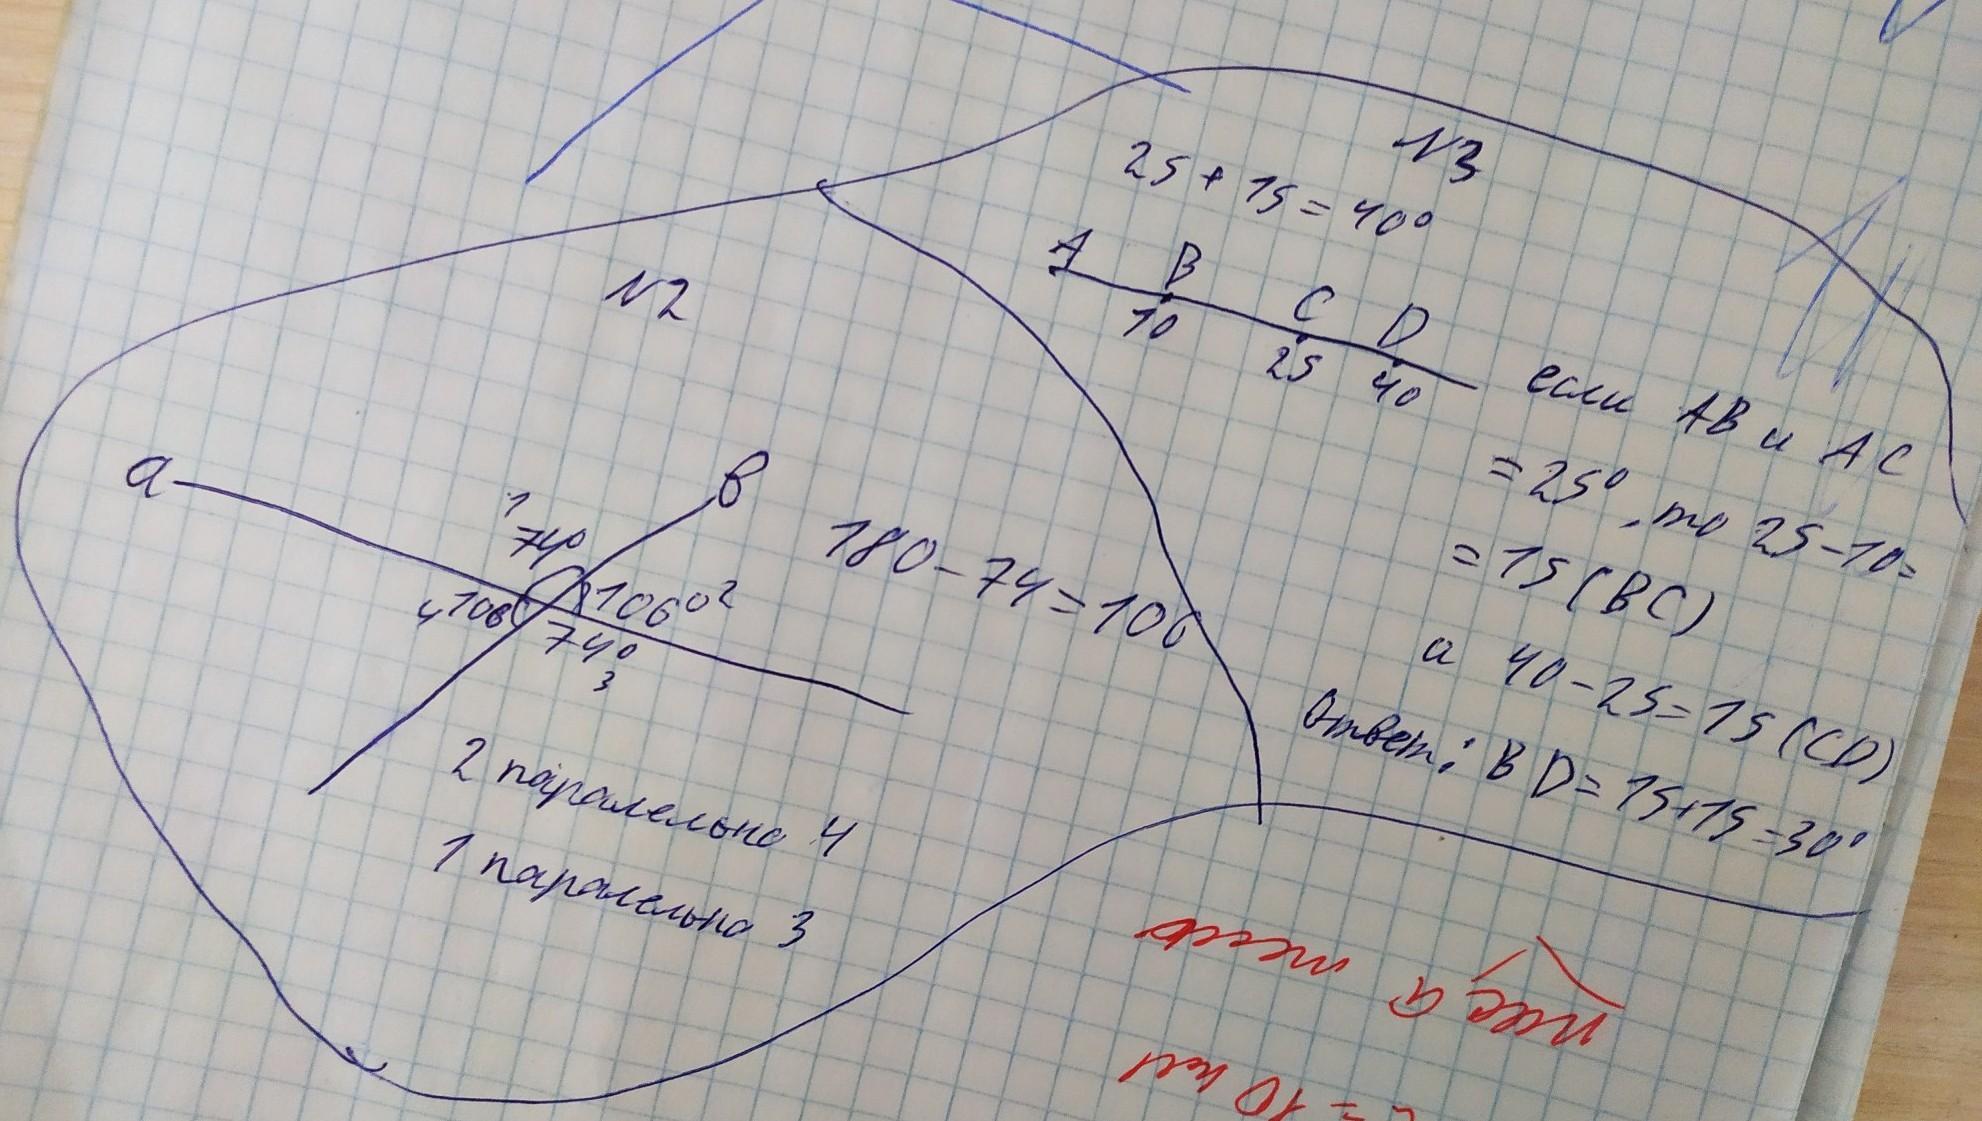 N3
25 + 15 = 40°
A B C D
10 25 40
если AB и AC
= 25°, то 25-10=
= 15 (BC)
а 40-25=15 (CD)
Ответ: BD = 15+15=30°
N2
a
в
1
74°
106° 2
4 106
74°
3
180-74=106
2 паралельна 4
1 паралельна 3
= 10 см